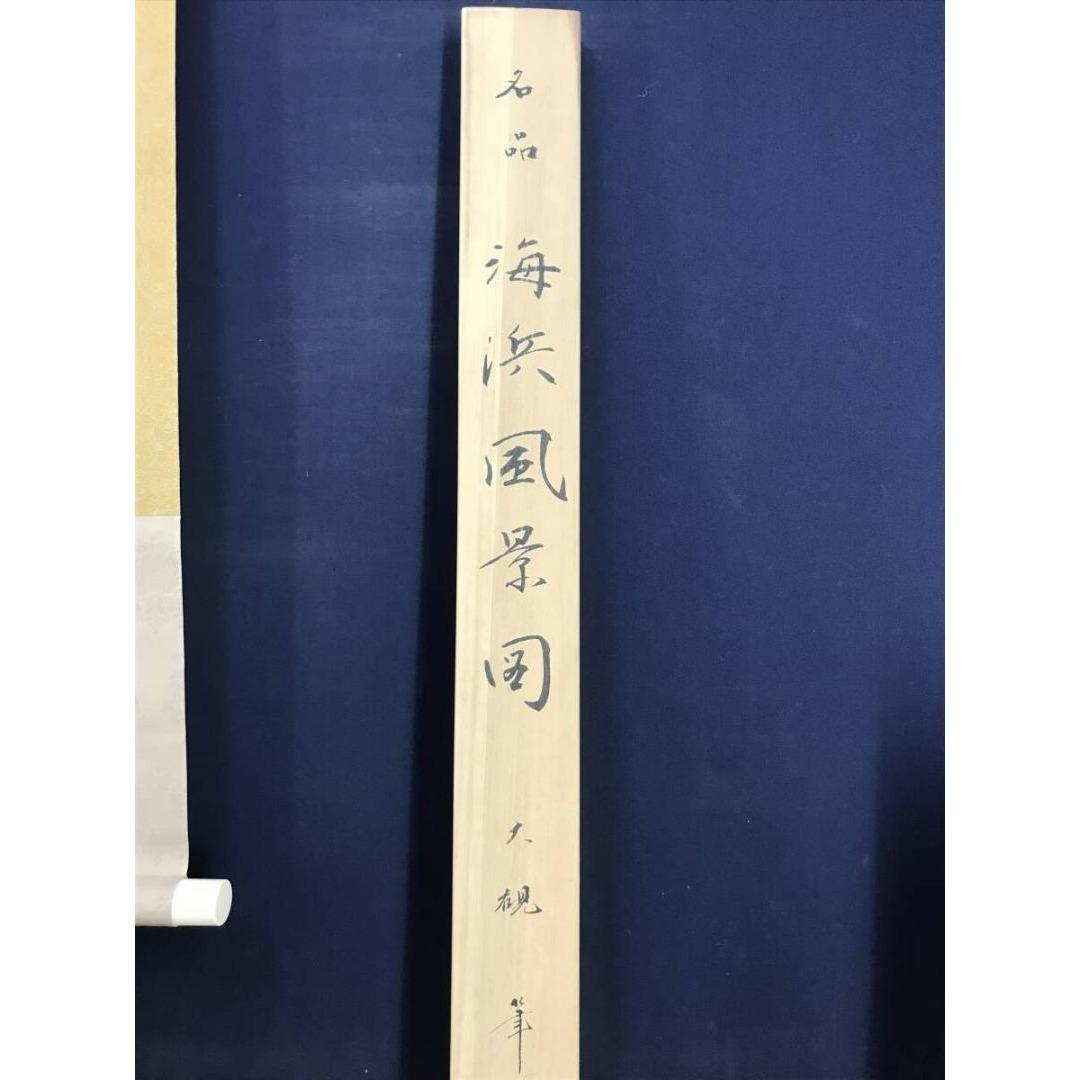 名品 海浜風景図 大硯 筆